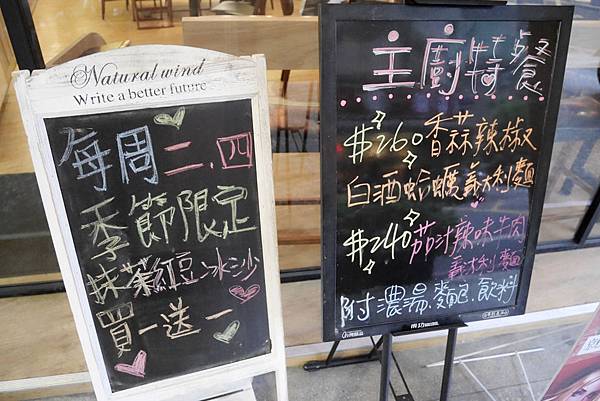 Natural wind
Write a better future
每周二.四
季節限定
抹茶紅豆冰沙
買一送一
主廚特餐
$260香蒜辣椒
白酒蛤蠣義大利麵
$240茄汁辣味牛肉
義大利麵
附濃湯.麵包.飲料